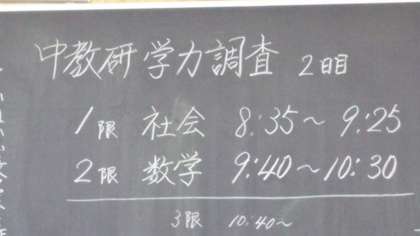 中教研学力調査 2日目
1限 社会 8:35~ 9:25
2限 数学 9:40~10:30
3限 10:40~